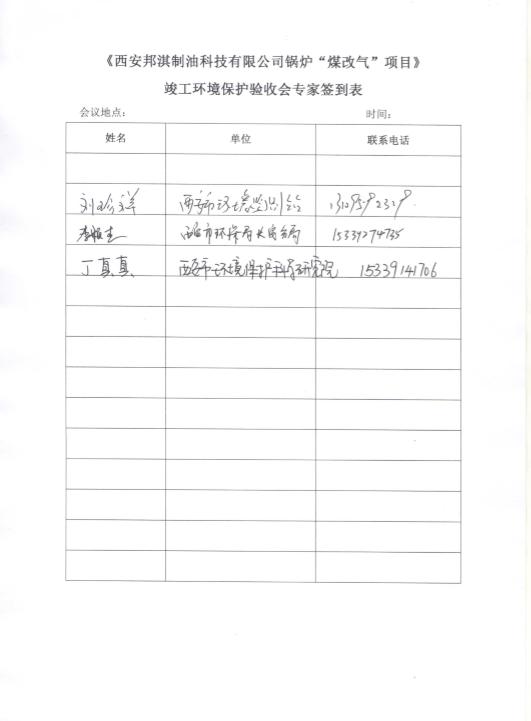 《西安邦淇制油科技有限公司锅炉“煤改气”项目》
竣工环境保护验收会专家签到表
会议地点： 时间：
姓名 单位 联系电话
刘珍祥 西安市环境监测站
西安市环保局长安分局 15339274735
丁真真 西安市环境保护科学研究院 15339141706